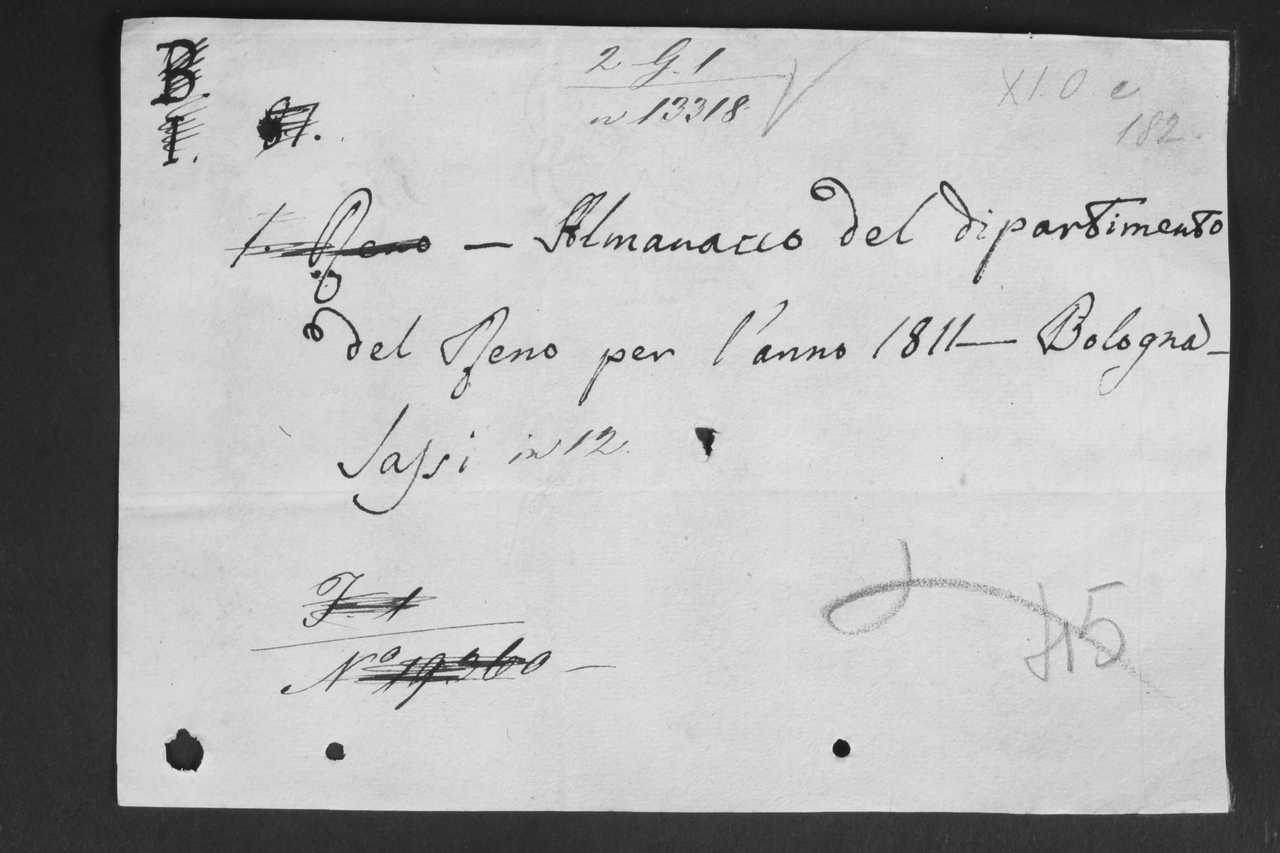 B.
I.
2 G. 1
n 13318
XI. O. e
182.
1. Reno — Almanacco del dipartimento
del Reno per l'anno 1811 — Bologna —
Sassi in 12.
F. 1
N.º 19.360 —